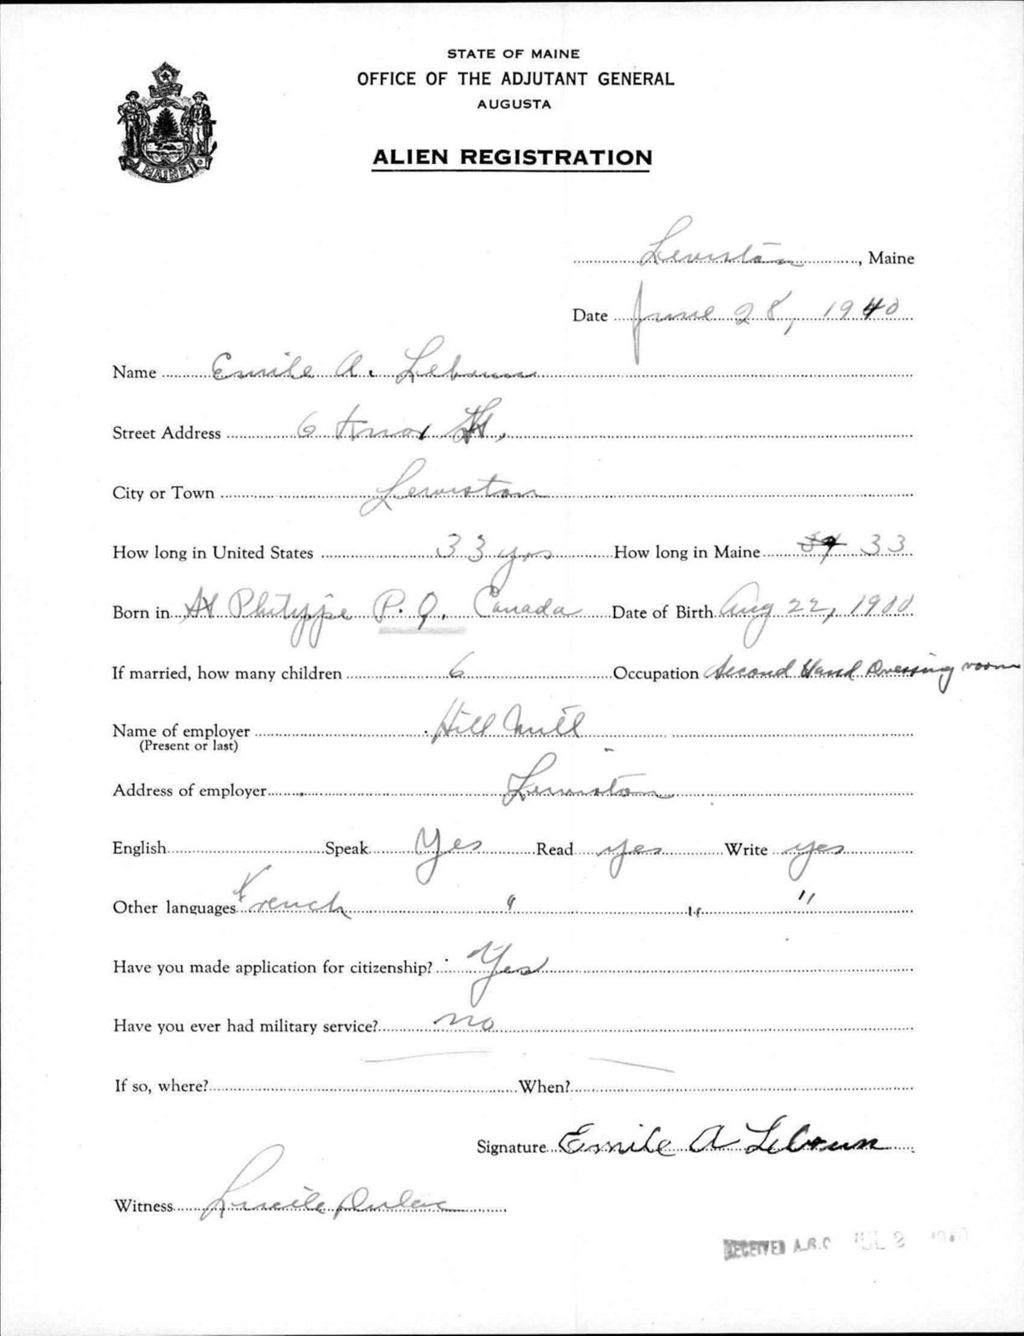 STATE OF MAINE
OFFICE OF THE ADJUTANT GENERAL
AUGUSTA
ALIEN REGISTRATION
MAINE
Lewiston, Maine
Date June 28, 1940
Name Emile A. Lebrun
Street Address 6 Knox St.
City or Town Lewiston
How long in United States 33 yrs How long in Maine 33
Born in St Philippe P.Q. Canada Date of Birth Aug 22, 1900
If married, how many children 6 Occupation Second Hand Dressing room
Name of employer Hill Mill
(Present or last)
Address of employer Lewiston
English Speak Yes Read yes Write yes
Other languages French " " "
Have you made application for citizenship? Yes
Have you ever had military service? no
If so, where? — When? —
Signature Emile A Lebrun
Witness Lucile Dulac
RECEIVED A.G.O. JUL 2 1940